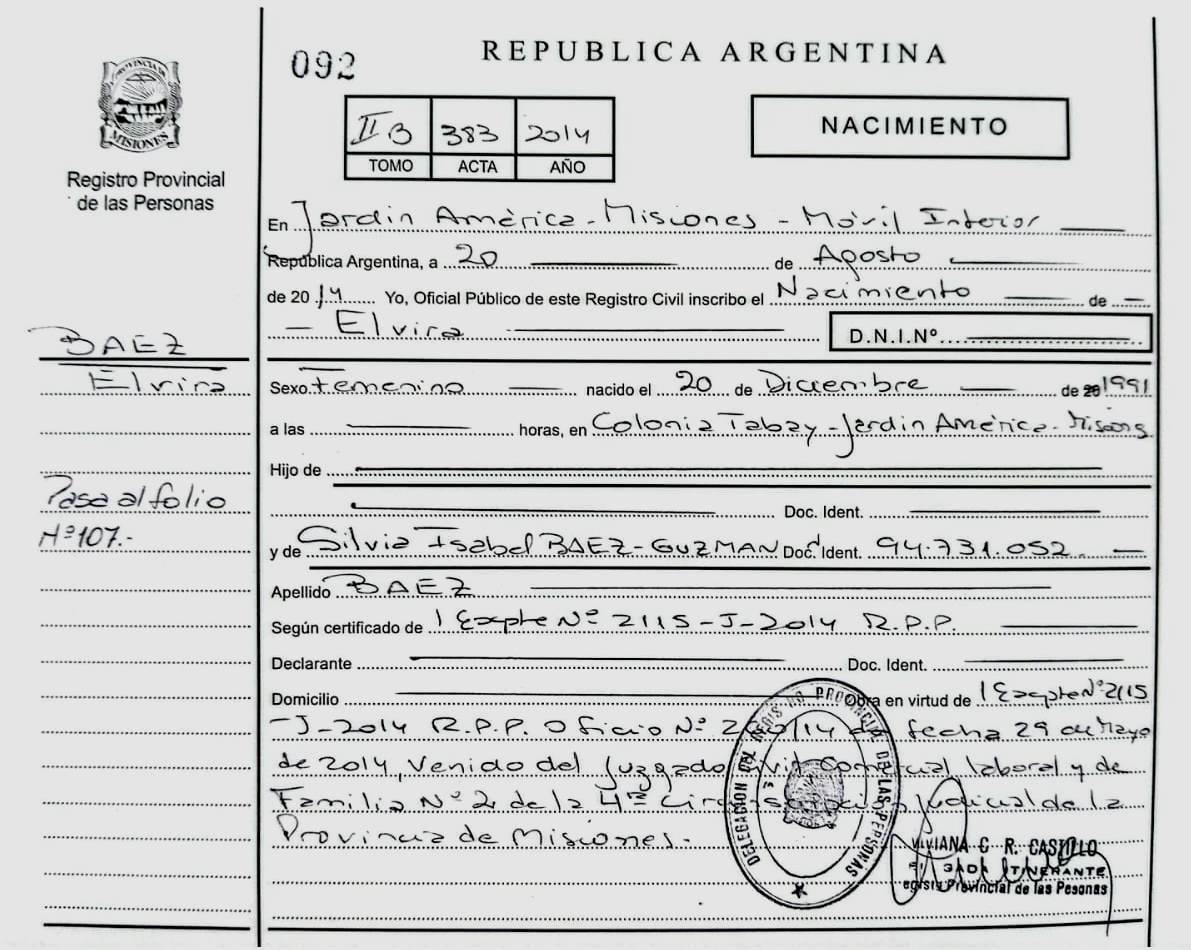 092
REPUBLICA ARGENTINA
PROVINCIA DE
MISIONES
Registro Provincial
de las Personas
II B 383 2014
TOMO ACTA AÑO
NACIMIENTO
En Jardin América - Misiones - Móvil Interior
República Argentina, a 20 de Agosto
de 2014 Yo, Oficial Público de este Registro Civil inscribo el Nacimiento de
Elvira
D.N.I.Nº
BAEZ
Elvira
Sexo Femenino nacido el 20 de Diciembre de 20 1991
a las horas, en Colonia Tabay - Jardin América - Misiones
Hijo de
Doc. Ident.
Pasa al folio
Nº 107.-
y de Silvia Isabel BAEZ - GUZMAN Doc. Ident. 94.731.052
Apellido BAEZ
Según certificado de Expte Nº 2115-J-2014 R.P.P.
Declarante Doc. Ident.
Domicilio Obra en virtud de Expte Nº 2115
-J-2014 R.P.P. Oficio Nº /14 de fecha 29 de Mayo
de 2014, Venido del Juzgado Civil Comercial laboral y de
Familia Nº 2 de la 4ta Circunscripción Judicial de la
Provincia de Misiones.-
DELEGACION DEL REGISTRO PROVINCIAL DE LAS PERSONAS
VIVIANA C R. CASTILLO
ITINERANTE
Provincial de las Pesonas